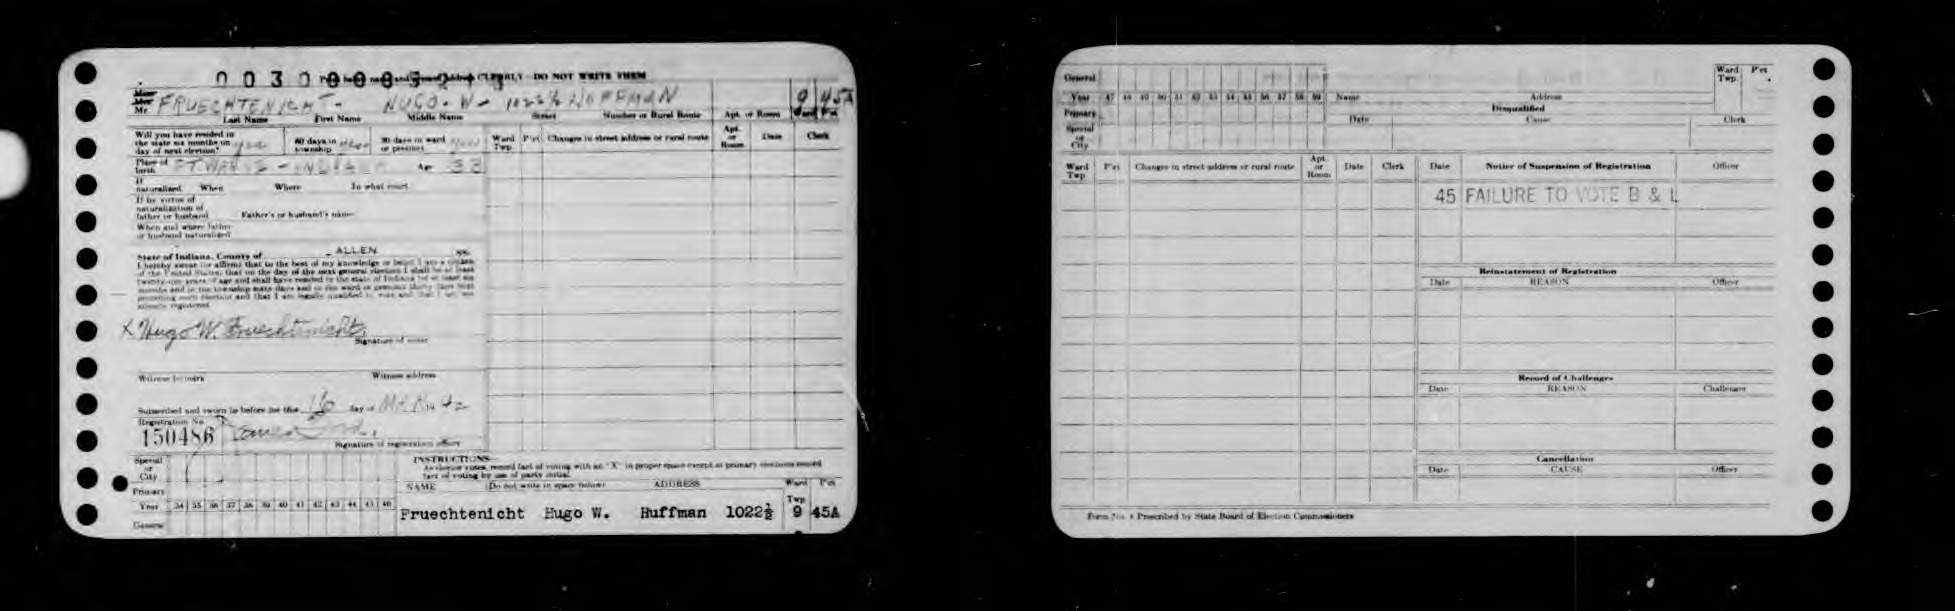 CLEARLY - DO NOT WRITE THEM
Mr. FRUECHTENICHT - HUGO - W - 1022½ HOFFMAN 9 45A
Last Name First Name Middle Name Street Number or Rural Route Apt. or Room Ward Pct
Will you have resided in the state six months on day of next election? yes 60 days in township yes 30 days in ward or precinct yes
Ward Twp. P'ct Changes in street address or rural route Apt. or Room Date Clerk
Place of birth FT. WAYNE - INDIANA Age 33
If naturalized When Where In what court
If by virtue of naturalization of father or husband Father's or husband's name
When and where father or husband naturalized
State of Indiana, County of ALLEN ss:
I hereby swear (or affirm) that to the best of my knowledge or belief I am a citizen
of the United States; that on the day of the next general election I shall be at least
twenty-one years of age and shall have resided in the state of Indiana for at least six
months and in the township sixty days and in the ward or precinct thirty days next
preceding such election and that I am legally qualified to vote and that I am not
already registered.
X Hugo W. Fruechtenicht
Signature of voter
Witness to mark Witness address
Subscribed and sworn to before me this 16 day of MAR 42
Registration No.
150486
Signature of registration officer
Special or City
Primary
Year 34 35 36 37 38 39 40 41 42 43 44 45 46
General
INSTRUCTIONS
As elector votes, record fact of voting with an "X" in proper space except at primary elections record
fact of voting by use of party initial.
NAME Do not write in space below ADDRESS Ward Twp. P'ct
Fruechtenicht Hugo W. Huffman 1022½ 9 45A
General
Year 47 48 49 50 51 52 53 54 55 56 57 58 59 Name Address Ward Twp. P'ct
Primary Disqualified
Special or City Date Cause Clerk
Ward Twp. P'ct Changes in street address or rural route Apt. or Room Date Clerk Date Notice of Suspension of Registration Officer
45 FAILURE TO VOTE B & L
Reinstatement of Registration
Date REASON Officer
Record of Challenges
Date REASON Challenger
Cancellation
Date CAUSE Officer
Form No. 4 Prescribed by State Board of Election Commissioners